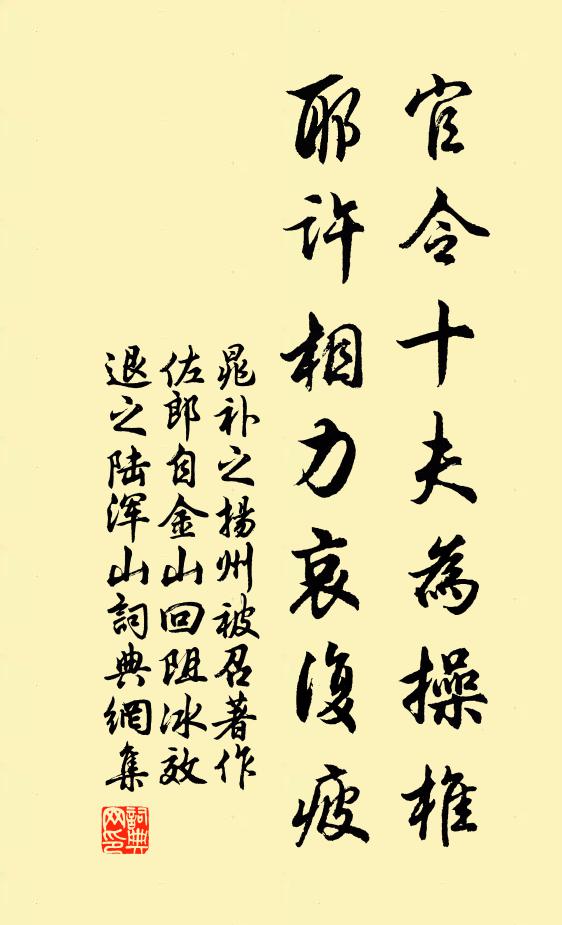 官令十夫為操椎
耶許相力哀復疲
晁补之揚州被召著作
佐郎自金山回阻冰效
退之陆渾山詞典網集
詞典
网印